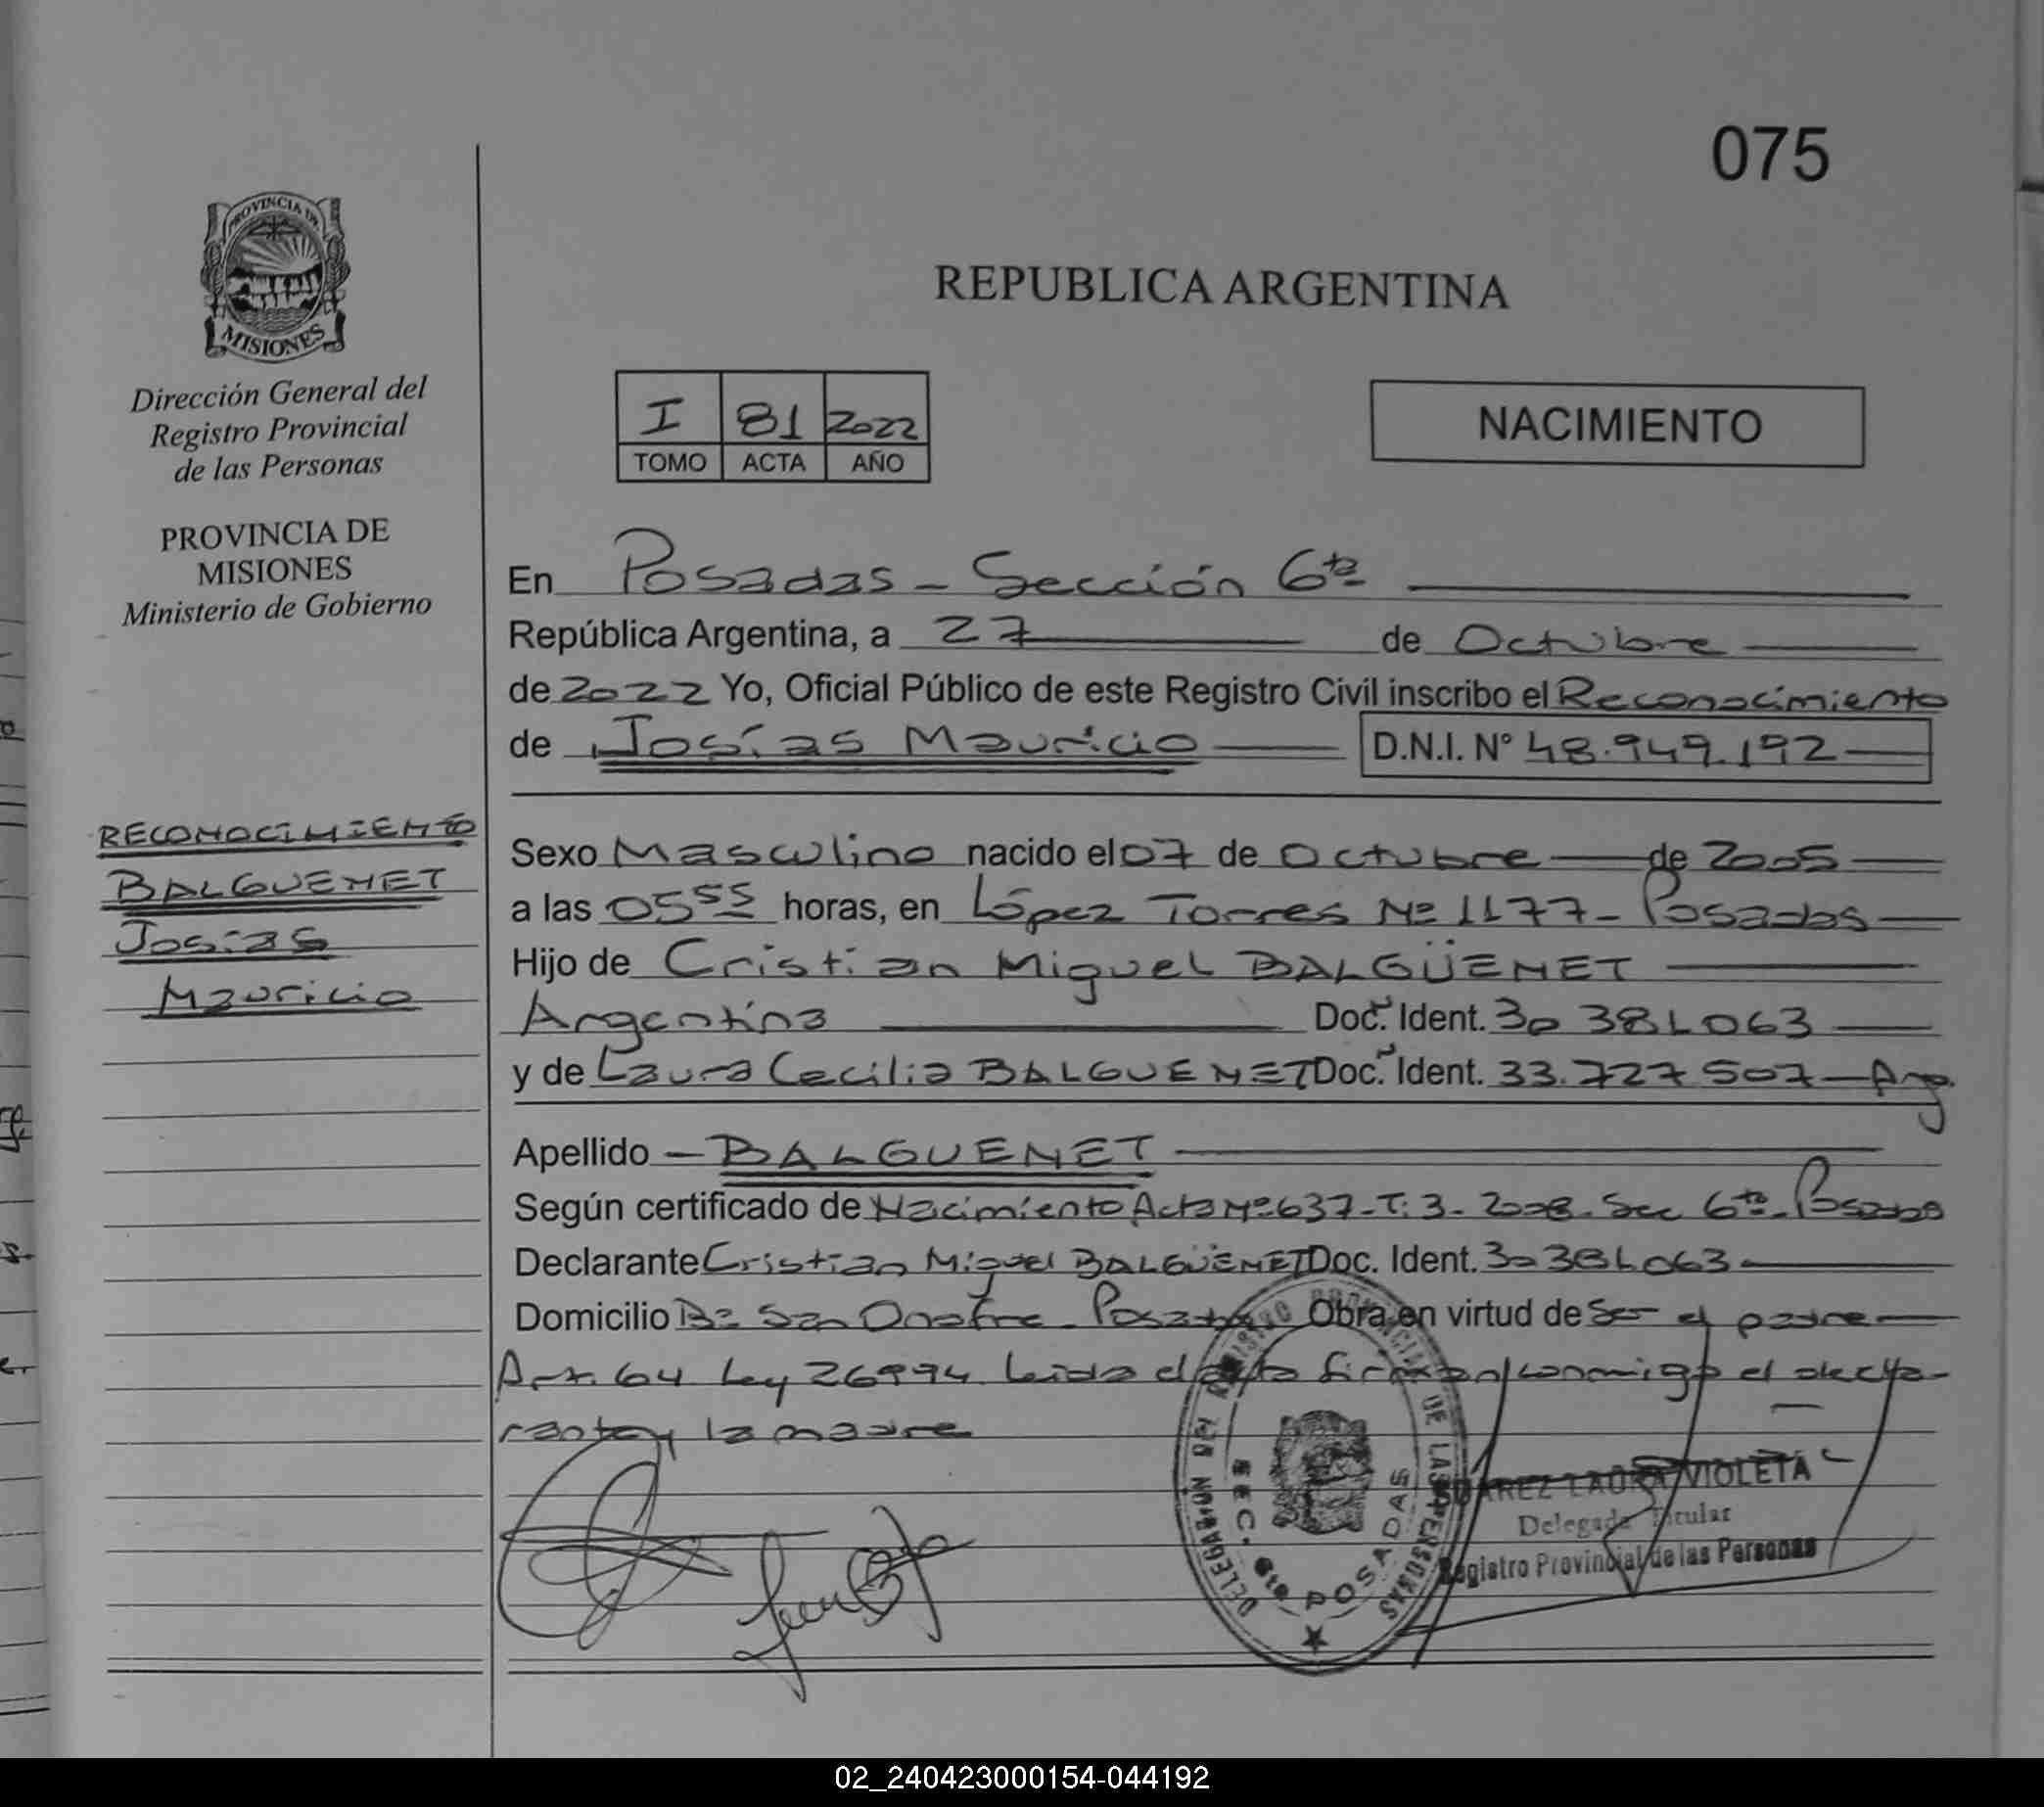 075
PROVINCIA DE
MISIONES
Dirección General del
Registro Provincial
de las Personas
PROVINCIA DE
MISIONES
Ministerio de Gobierno
RECONOCIMIENTO
BALGUENET
Josías
Mauricio
REPUBLICA ARGENTINA
I 81 2022
TOMO ACTA AÑO
NACIMIENTO
En Posadas - Sección 6ta
República Argentina, a 27 de Octubre
de 2022 Yo, Oficial Público de este Registro Civil inscribo el Reconocimiento
de Josías Mauricio D.N.I. N° 48.949.192
Sexo Masculino nacido el 07 de Octubre de 2005
a las 05 55 horas, en López Torres Nº 1177 - Posadas
Hijo de Cristian Miguel BALGÜENET
Argentina Doc. Ident. 30 381 063
y de Laura Cecilia BALGUENET Doc. Ident. 33.727 507 - Arg.
Apellido - BALGUENET
Según certificado de Nacimiento Acta Nº 637 - T: 3 - 2008 - Sec 6ta - Posadas
Declarante Cristian Miguel BALGÜENET Doc. Ident. 30 381 063
Domicilio Bº San Onofre - Posadas Obra en virtud de Ser el padre
Art. 64 Ley 26994 Leida el acta firman conmigo el decla-
rante y la madre
DELEGACION DEL REGISTRO PROVINCIAL DE LAS PERSONAS
SEC. 6ta POSADAS
SUAREZ LAURA VIOLETA
Delegada Titular
Registro Provincial de las Personas
02_240423000154-044192